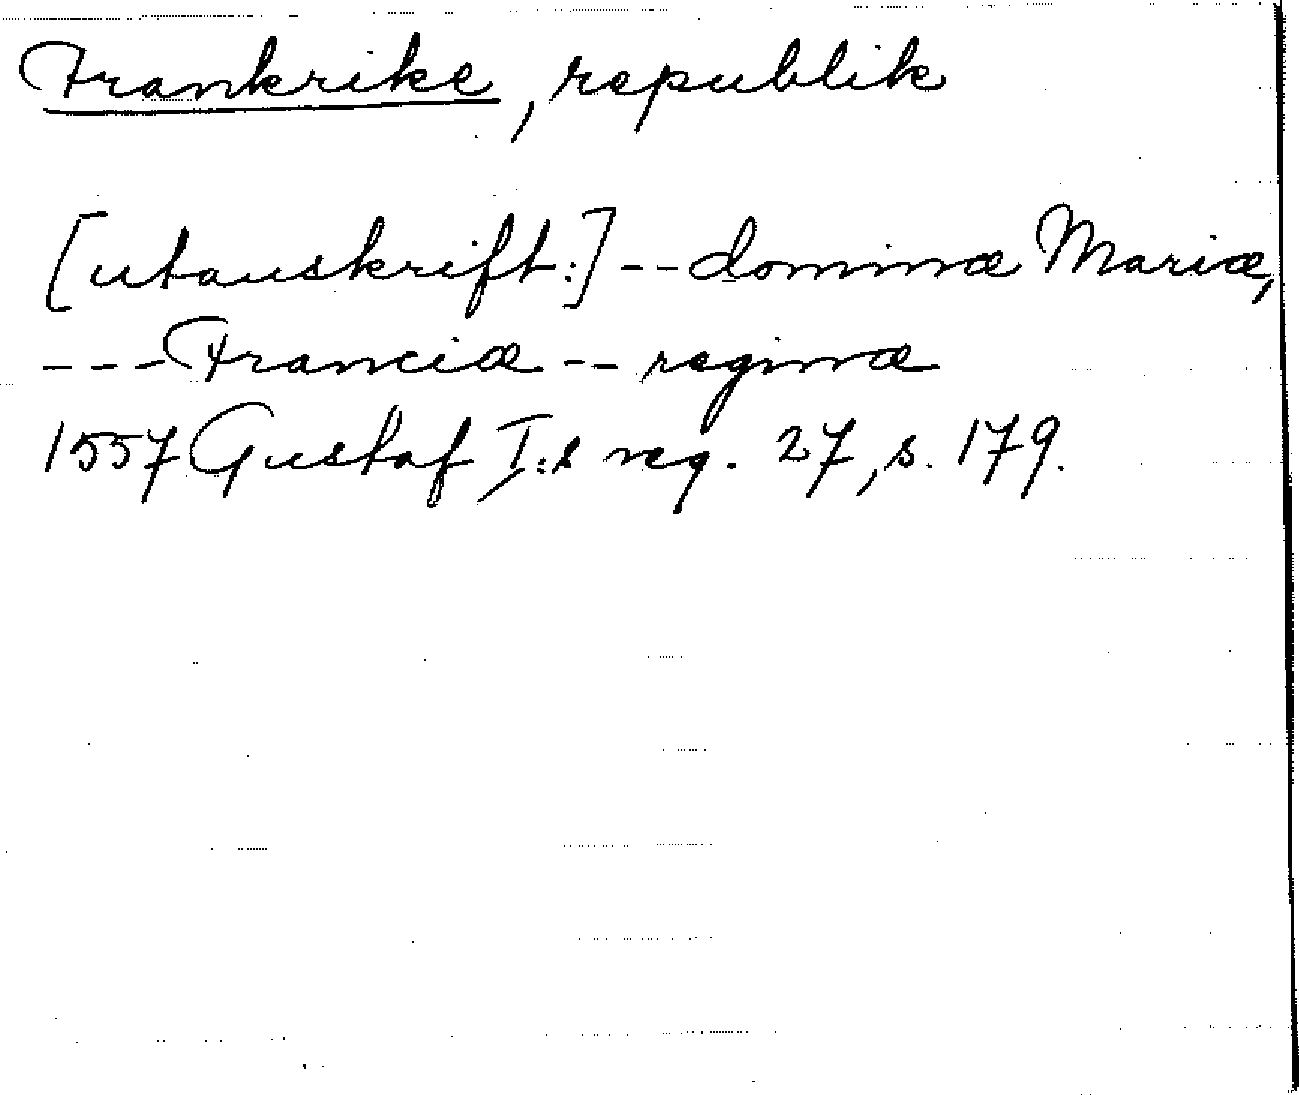 Frankrike, republik
[utanskrift:] -- dominæ Mariæ,
--- Franciæ -- reginæ
1557 Gustaf I:s reg. 27, s. 179.